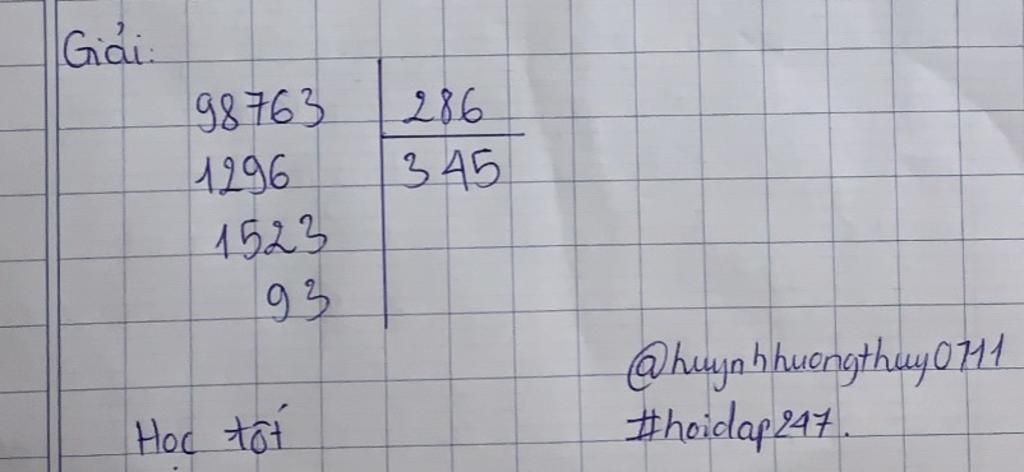 Giải:
98763 286
1296 345
1523
93
@huynhhuongthuy0711
Học tốt #hoidap247.